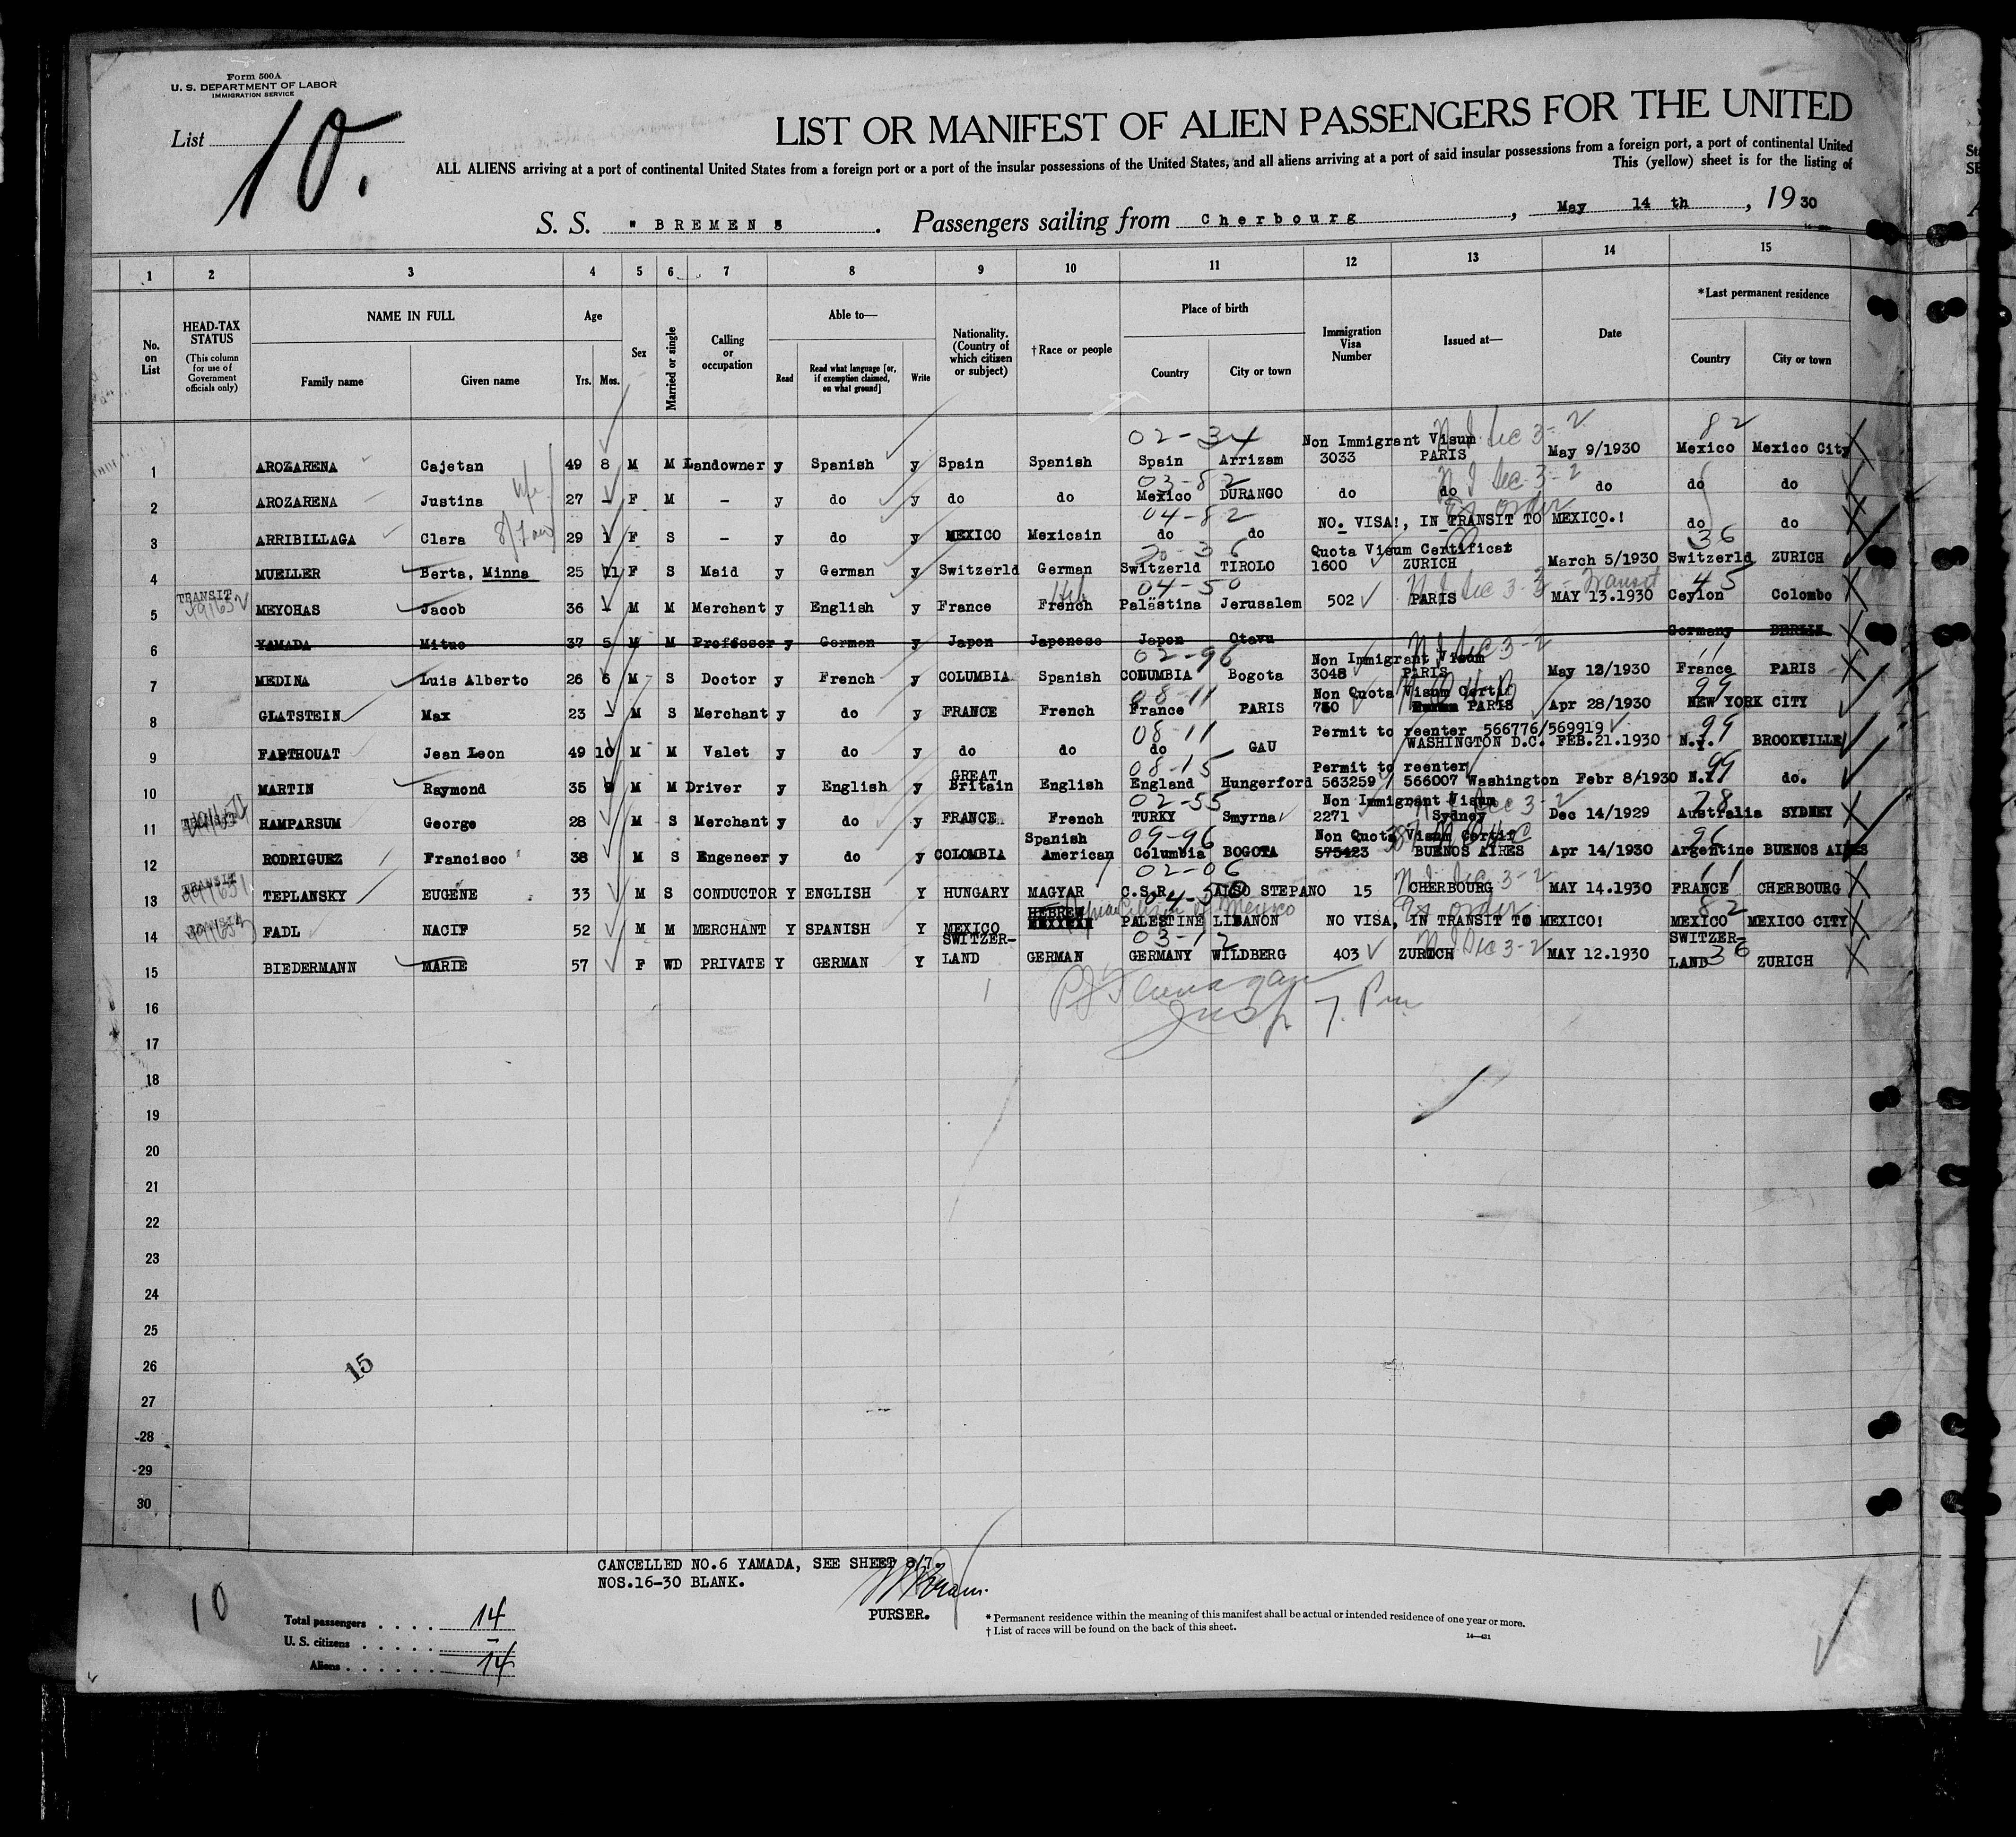 Form 500A
U. S. DEPARTMENT OF LABOR
IMMIGRATION SERVICE
List 10.
LIST OR MANIFEST OF ALIEN PASSENGERS FOR THE UNITED
ALL ALIENS arriving at a port of continental United States from a foreign port or a port of the insular possessions of the United States, and all aliens arriving at a port of said insular possessions from a foreign port, a port of continental United
This (yellow) sheet is for the listing of
S. S. " BREMEN " . Passengers sailing from Cherbourg , May 14 th , 19 30
1 2 3 4 5 6 7 8 9 10 11 12 13 14 15
No. on List
HEAD-TAX STATUS (This column for use of Government officials only)
NAME IN FULL Family name Given name
Age Yrs. Mos.
Sex
Married or single
Calling or occupation
Able to— Read Read what language [or, if exemption claimed, on what ground] Write
Nationality. (Country of which citizen or subject)
†Race or people
Place of birth Country City or town
Immigration Visa Number
Issued at—
Date
*Last permanent residence Country City or town
02-34 Non Immigrant Visum N I Sec 3-2 82
1 AROZARENA Cajetan 49 8 M M Landowner y Spanish y Spain Spanish Spain Arrizam 3033 PARIS May 9/1930 Mexico Mexico City
03-82 N I Sec 3-2
2 AROZARENA Justina 27 - F M - y do y do do Mexico DURANGO do do do do do
04-82
3 ARRIBILLAGA Clara 29 1 F S - y do y MEXICO Mexicain do do NO. VISA!, IN TRANSIT TO MEXICO.! do do
36 Quota Visum Certificat
4 MUELLER Berta, Minna 25 11 F S Maid y German y Switzerld German Switzerld TIROLO 1600 ZURICH March 5/1930 Switzerld ZURICH
TRANSIT Heb 04-50 N I Sec 3-3 - Transit 45
5 MEYOHAS Jacob 36 - M M Merchant y English y France French Palästina Jerusalem 502 PARIS MAY 13.1930 Ceylon Colombo
6 YAMADA Mituo 37 5 M M Professor y German y Japon Japonese Japon Otavu Germany BERLIN
02-96 Non Immigrant Visum N I Sec 3-2 11
7 MEDINA Luis Alberto 26 6 M S Doctor y French y COLUMBIA Spanish COLUMBIA Bogota 3048 PARIS May 12/1930 France PARIS
08-11 Non Quota Visum Certif 99
8 GLATSTEIN Max 23 - M S Merchant y do y FRANCE French France PARIS 750 PARIS Apr 28/1930 NEW YORK CITY
08-11 Permit to reenter 566776/569919 99
9 FARTHOUAT Jean Leon 49 10 M M Valet y do y do do do GAU WASHINGTON D.C. FEB.21.1930 N.Y. BROOKVILLE
08-15 Permit to reenter 99
10 MARTIN Raymond 35 9 M M Driver y English y GREAT Britain English England Hungerford 563259 / 566007 Washington Febr 8/1930 N.Y. do.
02-55 Non Immigrant Visum Sec 3-2 78
11 HAMPARSUM George 28 M S Merchant y do y FRANCE French TURKY Smyrna 2271 Sydney Dec 14/1929 Australia SYDNEY
09-96 Non Quota Visum Certif 96
12 RODRIGUEZ Francisco 38 M S Engeneer y do y COLOMBIA Spanish American Columbia BOGOTA 575423 BUENOS AIRES Apr 14/1930 Argentine BUENOS AIRES
TRANSIT 02-06 N I Sec 3-2 11
13 TEPLANSKY EUGENE 33 M S CONDUCTOR Y ENGLISH Y HUNGARY MAGYAR C.S.R. ALSO STEPANO 15 CHERBOURG MAY 14.1930 FRANCE CHERBOURG
TRANSIT HEBREW Syrian Citizen of Mexico 04-50 82
14 FADL NACIF 52 M M MERCHANT Y SPANISH Y MEXICO PALESTINE LIBANON NO VISA, IN TRANSIT TO MEXICO! MEXICO MEXICO CITY
03-12 N I Sec 3-2 36
15 BIEDERMANN MARIE 57 F WD PRIVATE Y GERMAN Y SWITZER-LAND GERMAN GERMANY WILDBERG 403 ZURICH MAY 12.1930 SWITZER-LAND ZURICH
Insp 7. Pm
16
17
18
19
20
21
22
23
24
25
26
27
28
29
30
15
CANCELLED NO.6 YAMADA, SEE SHEET 8/7.
NOS.16-30 BLANK.
PURSER.
10
Total passengers . . . . 14
U. S. citizens . . . . . -
Aliens . . . . . . 14
* Permanent residence within the meaning of this manifest shall be actual or intended residence of one year or more.
† List of races will be found on the back of this sheet.
14—421